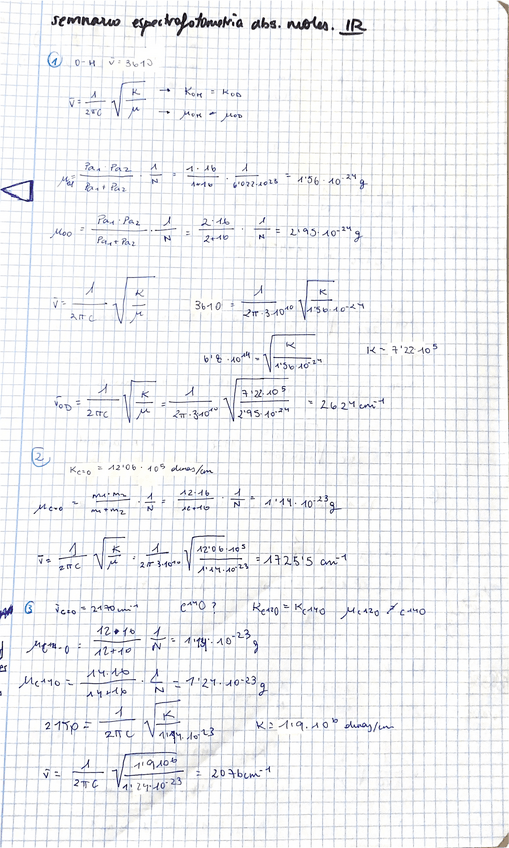 seminario espectrofotometria abs. moles. IR
① O-H ν̄ = 3610
ν̄ = 1/2πc √(K/μ) → K_OH = K_OD
→ μ_OH ≠ μ_OD
μ_OH = (Pa1 · Pa2)/(Pa1 + Pa2) · 1/N = (1·16)/(1+16) · 1/(6'022·10²³) = 1'56·10⁻²⁴ g
μ_OD = (Pa1 · Pa2)/(Pa1 + Pa2) · 1/N = (2·16)/(2+16) · 1/N = 2'95·10⁻²⁴ g
ν̄ = 1/2πc √(K/μ) 3610 = 1/(2π·3·10¹⁰) √(K/(1'56·10⁻²⁴))
6'8·10¹⁴ = √(K/(1'56·10⁻²⁴)) K = 7'22·10⁵
ν̄_OD = 1/2πc √(K/μ) = 1/(2π·3·10¹⁰) √((7'22·10⁵)/(2'95·10⁻²⁴)) = 2624 cm⁻¹
②
K_C=O = 12'06 · 10⁵ dinas/cm
μ_C=O = (m1·m2)/(m1+m2) · 1/N = (12·16)/(12+16) · 1/N = 1'14·10⁻²³ g
ν̄ = 1/2πc √(K/μ) = 1/(2π·3·10¹⁰) √((12'06·10⁵)/(1'14·10⁻²³)) = 1725'5 cm⁻¹
③ ν̄_C=O = 2170 cm⁻¹ C14O ? K_C12O = K_C14O μ_C12O ≠ C14O
= (12·16)/(12+16) · 1/N = 1'14·10⁻²³ g
μ_C14O = (14·16)/(14+16) · 1/N = 1'24·10⁻²³ g
2170 = 1/2πc √(K/(1'14·10⁻²³)) K = 1'9·10⁶ dinas/cm
ν̄ = 1/2πc √((1'9·10⁶)/(1'24·10⁻²³)) = 2076 cm⁻¹